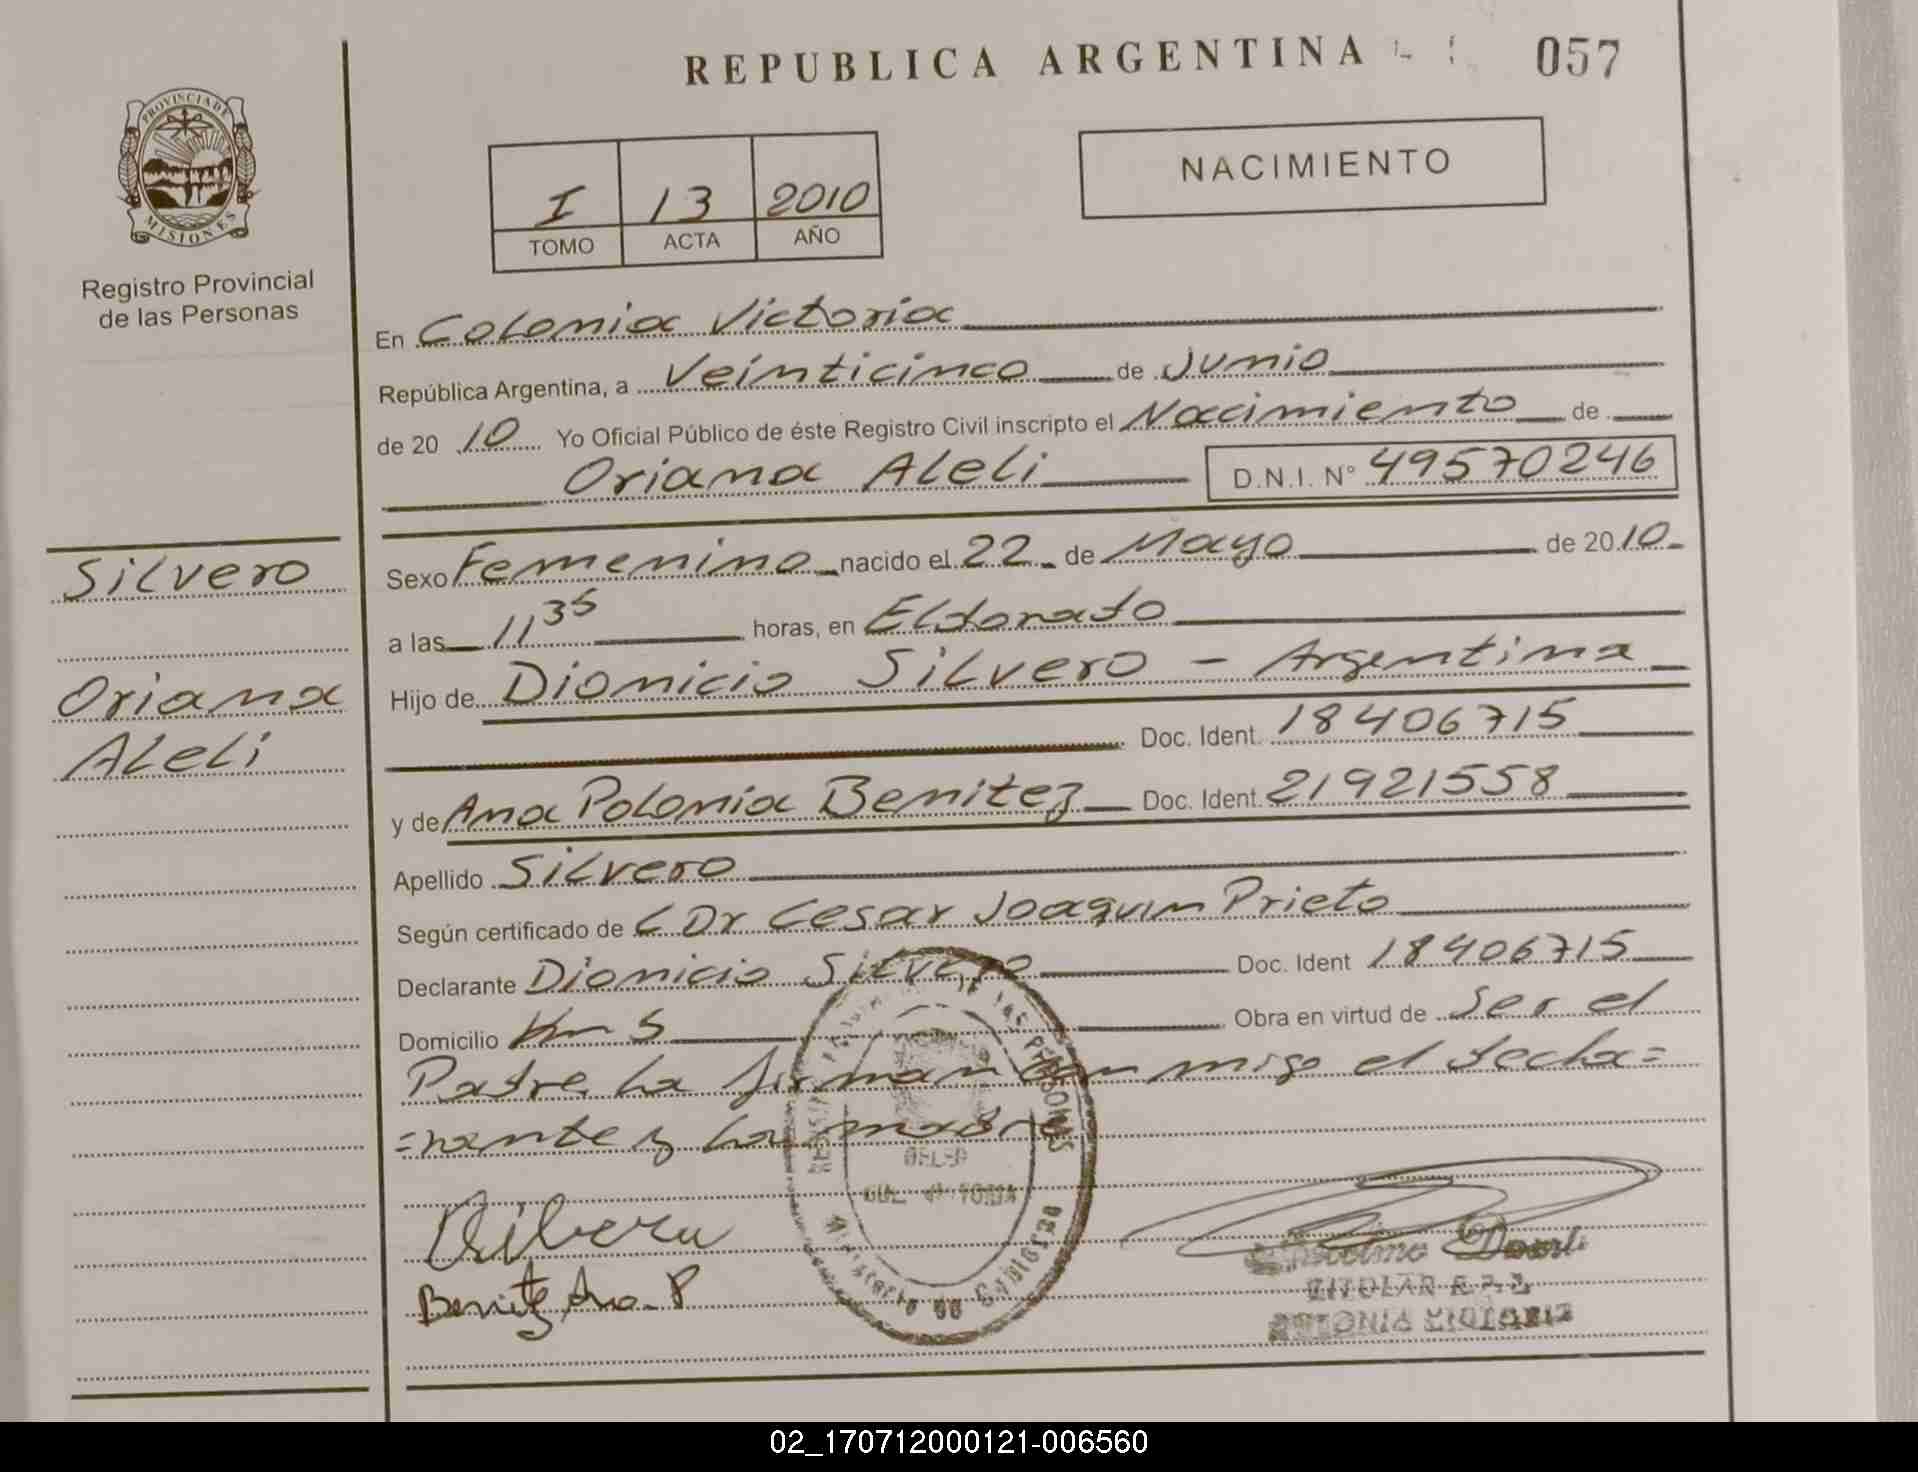 REPUBLICA ARGENTINA
057
PROVINCIA DE
MISIONES
Registro Provincial
de las Personas
I 13 2010
TOMO ACTA AÑO
NACIMIENTO
En Colonia Victoria
República Argentina, a Veinticinco de Junio
de 20 10 Yo Oficial Público de éste Registro Civil inscripto el Nacimiento de
Oriana Aleli D.N.I. N° 49570246
Silvero
Oriana
Aleli
Sexo Femenino nacido el 22 de Mayo de 2010
a las 11 35 horas, en Eldorado
Hijo de Dionicio Silvero - Argentina
Doc. Ident. 18406715
y de Ana Polonia Benitez Doc. Ident. 21921558
Apellido Silvero
Según certificado de Dr Cesar Joaquin Prieto
Declarante Dionicio Silvero Doc. Ident 18406715
Domicilio Km 5 Obra en virtud de Ser el
Padre La firman con migo el decla=
=rante y La madre
LAS PERSONAS
COL. VICTORIA
Ministerio de Gobierno
Benitez Ana. P
TITULAR R.P.P.
COLONIA VICTORIA
02_170712000121-006560